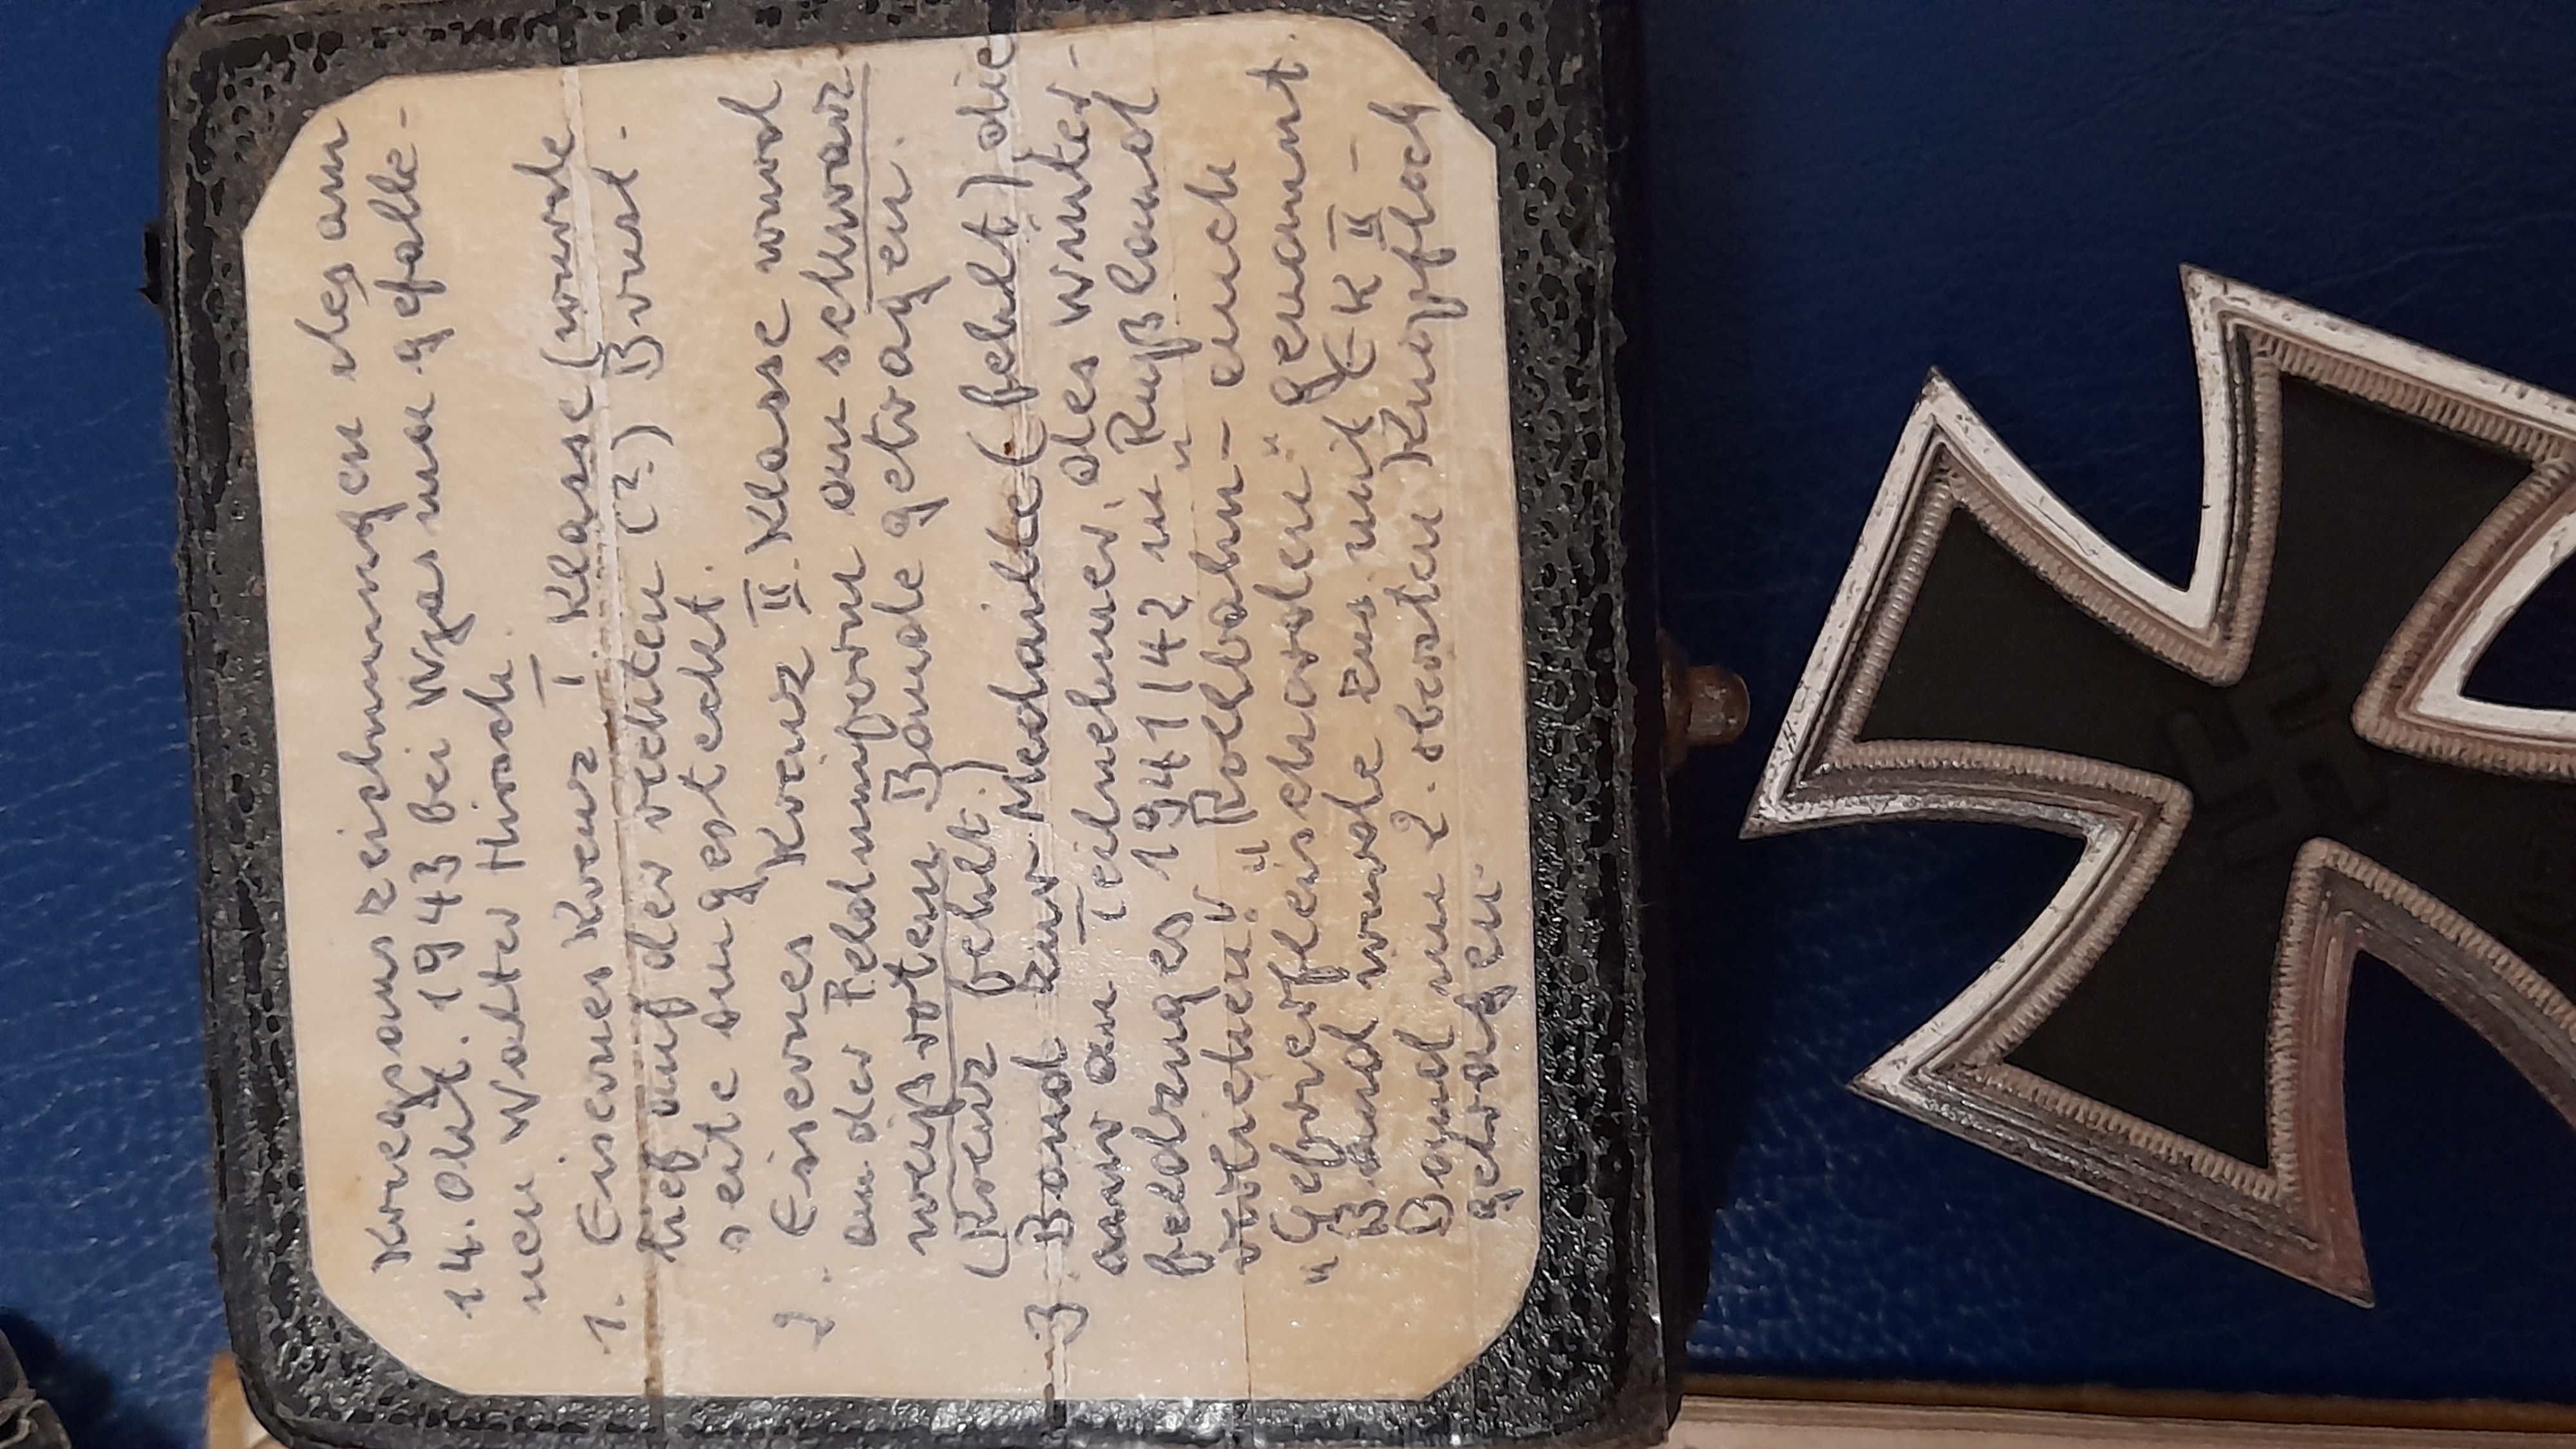 Kriegsauszeichnungen des am
14. Okt. 1943 bei Wjasma gefalle-
nen Walter Hirsch.
1. Eisernes Kreuz I Klasse (wurde
auf der rechten (?) Brust-
seite angesteckt.
2. Eisernes Kreuz II. Klasse wurd
an der Felduniform am schwarz
weiß roten Bande getragen.
(Kreuz fehlt.)
3. Band zur Medaille (fehlt) die
an Teilnehmer des Winter-
feldzuges 1941/42 in Rußland
verliehen. "Rollbahn- auch
"Gefrierfleischorden" genannt.
Band wurde zus. mit EK II -
Band im 2. obersten Knopfloch
getragen.